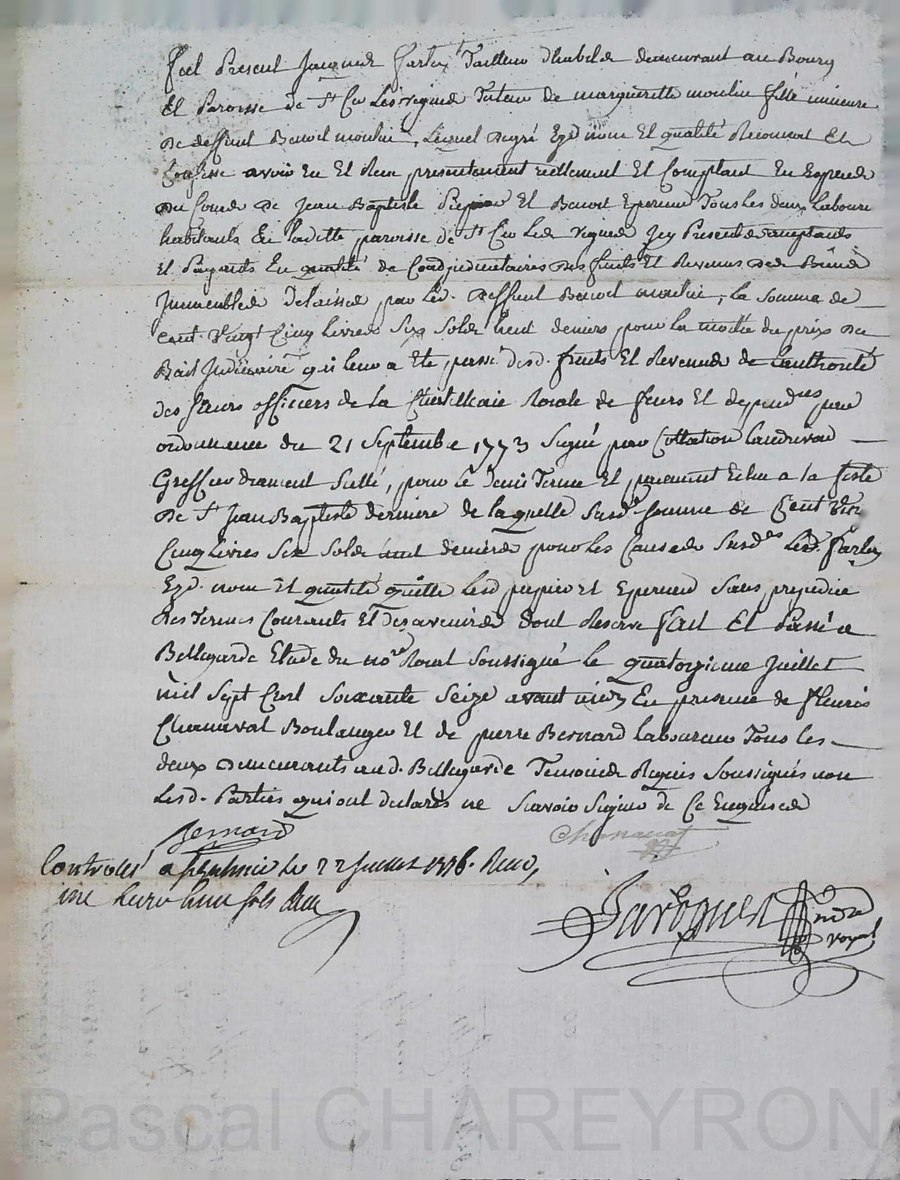 fut Present Jacques farlay Tailleur d'habits demeurant au Bourg
Et Paroisse de St Cir Les vignes Tuteur de margueritte moulin fille mineure
de deffunt Benoit moulin, Lequel degré Ezd nom Et qualité Reconnoit Et
Confesse avoir Eu Et Reçu presentement réellement Et Comptant En Especes
du Cours de Jean Baptiste Et Benoit Epercieu Tous Les deux Laboure
habitants En laditte paroisse de St Cir Les vignes Icy Presents acceptants
Et Payants En qualité de Coadjudicataires des fruits Et Revenus des Biens
Immeubles Delaissés par Led. deffunt Benoit moulin, la Somme de
cent Vingt Cinq Livres Six Sols huit deniers pour la moitié du prix du
Bail Judiciaire qui leur a Eté passé desd. fruits Et Revenus de Lauthorité
des sieurs officiers de la Chatellenie Royale de feurs Et dependces par
ordonnance du 21 Septembre 1773 Signé par Collation
Greffier duement Scellé, pour le Demi Terme Et paiement Echu a la feste
de St Jean Baptiste derniere de laquelle Susde Somme de Cent Vingt
Cinq Livres Six Sols huit deniers pour Les Causes Susdes Led. farlay
Ezd. nom Et qualité quitte Lesd papier et Epercieu Sans prejudice
des Termes Courants Et des avenirs dont Reserve fait Et Passé a
Bellegarde Etude du nore Royal Soussigné le quatorzieme Juillet
mil Sept Cent Soixante Seize avant midy En presence de fleuris
Charnavat Boulanger Et de pierre Bernard Laboureur Tous les
deux demeurants aud. Bellegarde Temoins Requis Soussignés non
Lesd. Parties qui ont declarés ne Scavoir Signer de Ce Enquises
Bernard
Charnavat
Controlé a le 22 Juillet 1776. Reçu
une livre huit sols
nore
royal
Pascal CHAREYRON